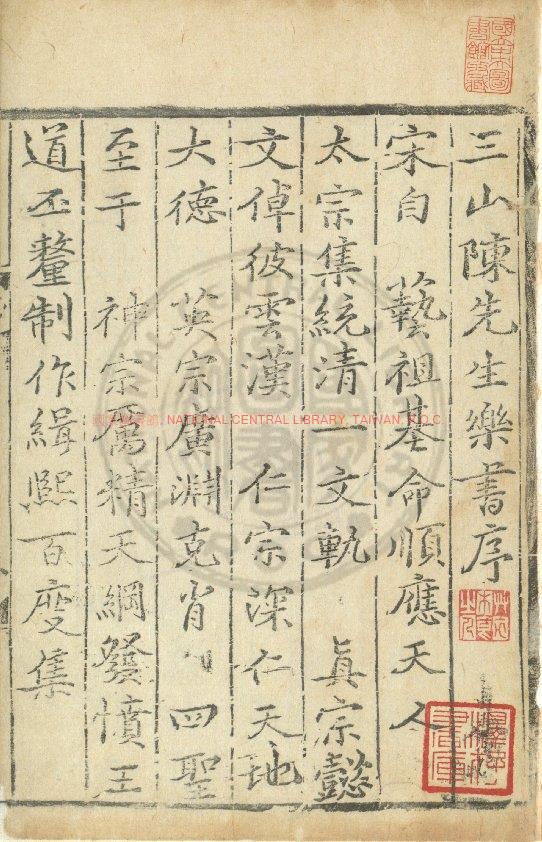 三山陳先生樂書序
宋自 藝祖基命順應天人
太宗集統清一文軌 真宗懿
文倬彼雲漢 仁宗深仁天地
大德 英宗廣淵克肖 四聖
至于 神宗厲精天綱發憤王
道丕釐制作緝熙百度集
國家圖書館, NATIONAL CENTRAL LIBRARY, TAIWAN, R.O.C